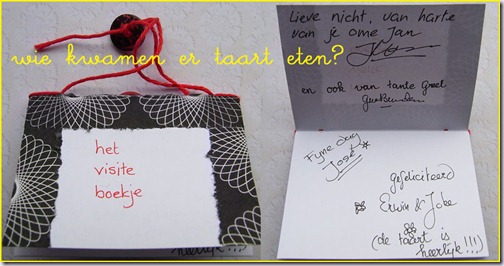 wie kwamen er taart eten?
het
visite
boekje
Lieve nicht, van harte
van je ome Jan
en ook van tante Greet
Fijne dag
José
gefeliciteerd
Erwin & Joke
(de taart is
heerlijk!!!)
heerlijk!!!)